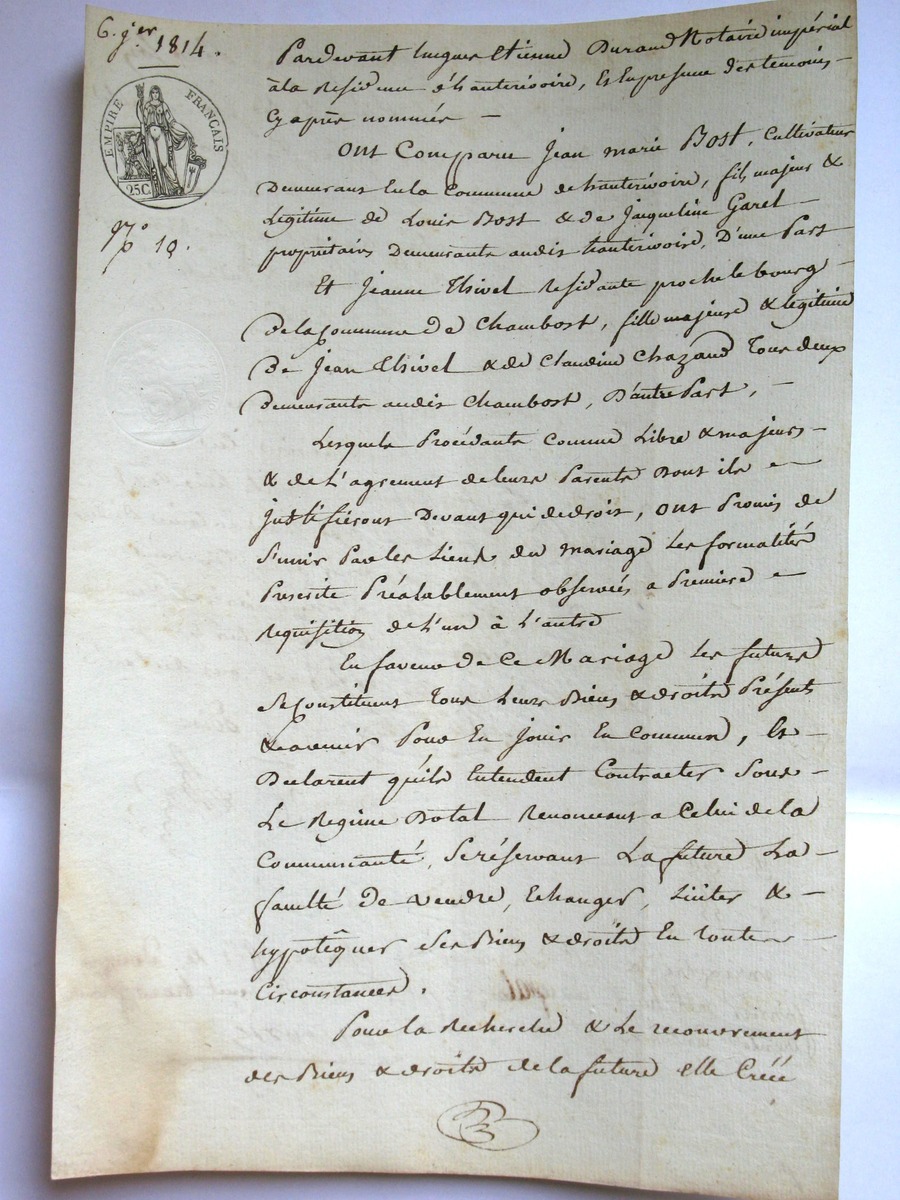 6. j.er 1814.
EMPIRE FRANÇAIS
25C.
N.o 19.
Pardevant hugues Etienne Durand Notaire impérial
à la Residence d'hauterivoire, Et En presence des temoins
Cy après nommés —
Ont Comparu Jean marie Bost, Cultivateur
Demeurant En la Commune de hauterivoire, fils majeur &
Legitime de Louis Bost & de Jacqueline Garel —
proprietaires Demeurants audit hauterivoire, D'une Part
Et Jeanne Thivel Residante proche le bourg —
De la Commune de Chambost, fille majeure & legitime
De Jean Thivel & de Claudine Chazaud Tous deux
Demeurants audit Chambost, D'autre Part, —
Lesquels Procédants Comme Libre & majeurs —
& de L'agrement de leurs Parents Dont ils —
Justifieront Devant qui de droit, Ont Promis de
S'unir Par les Liens du mariage Les formalités
Prescrite Préalablement observées a Premiere —
Requisition de L'un à L'autre
En faveur de Ce Mariage Les futurs
Se Constituent Tous Leurs Biens & droits Présents
& avenir Pour En jouir En Commun, Et —
Declarent qu'ils Entendent Contracter Sous —
Le Regime Dotal Renoncent a Celui de la
Communauté, Se réservant La future La —
faculté de vendre, Echanger, Liciter & —
hypotêquer Ses Biens & droits En toutes —
Circonstances.
Pour la Recherche & Le recouvrement
des Biens & droits de la future elle Créée